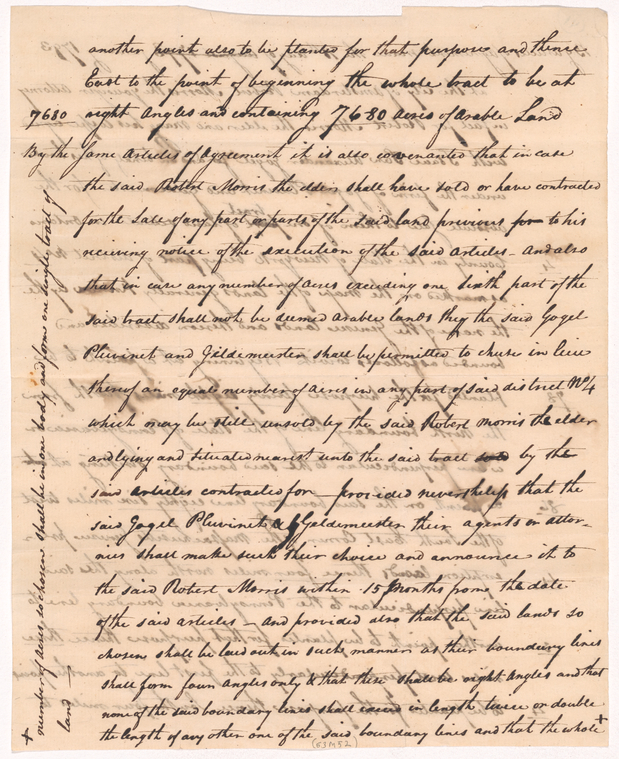 another point also to be planted for that purpose and thence
East to the point of beginning the whole tract to be at
7680 right Angles and containing 7680 Acres of Arable Land
By the same Articles of Agreement it is also covenanted that in case
the said Robert Morris the elder shall have sold or have contracted
for the Sale of any part or parts of the said land previous for to his
receiving notice of the execution of the said articles - and also
that in case any number of Acres exceeding one tenth part of the
said tract shall not be deemed Arable lands they the said Gogel
Pluvinet and Gildemeester shall be permitted to chuse in lieu
thereof an equal number of Acres in any part of said district No 4
which may be still unsold by the said Robert Morris the elder
and lying and situated nearest unto the said tract by the
said articles contracted for - provided nevertheless that the
said Gogel Pluvinet & Gildemeester their agents or attor-
nies shall make such their choice and announce it to
the said Robert Morris within 15 Months from the date
of the said articles - and provided also that the said lands so
chosen shall be laid out in such manner as their boundary lines
shall form four Angles only & that these shall be right Angles and that
none of the said boundary lines shall exceed in length twice or double
the length of any other one of the said boundary lines and that the whole +
+ number of acres so chosen shall be in one body and form one single tract of
land -
(53M52)